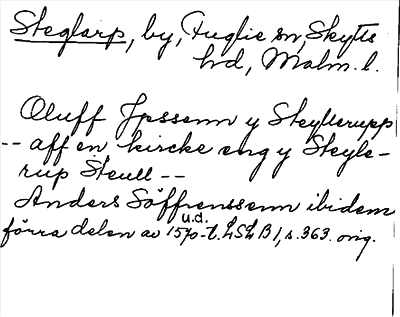 Steglarp, by, Fuglie sn, Skytts
hd, Malm. l.
Oluff Jpssenn y Steyllerupp
-- aff en kircke eng y Steyle-
rup Steull --
Anders Söffrenssenn ibidem
u.d.
förra delen av 1570-t. LSL B1, s. 363. orig.